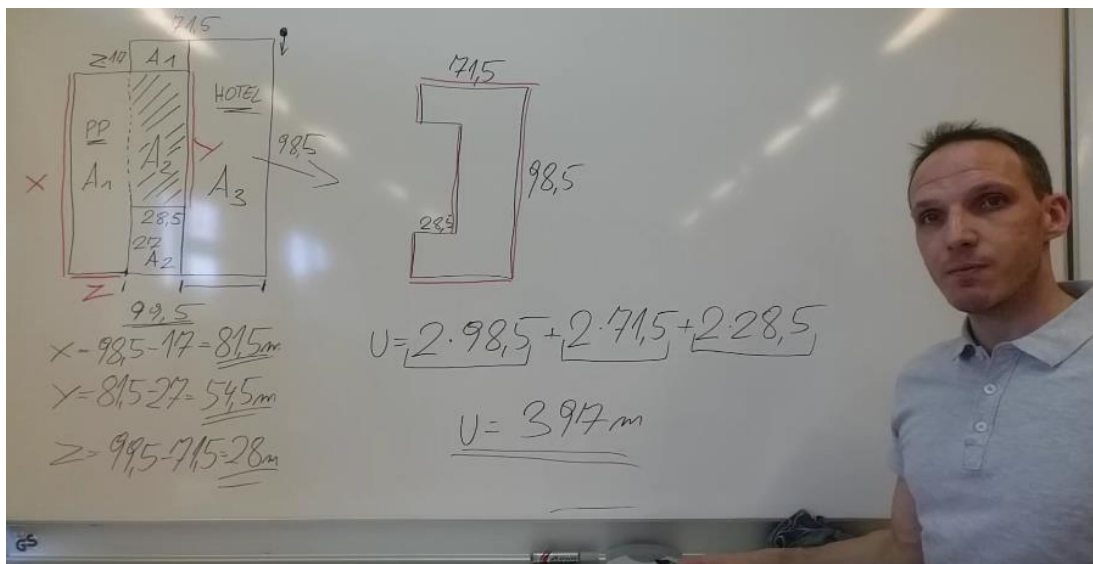 71,5
Z 17 A1
HOTEL
PP
A1 A2 Y A3
X
98,5
28,5
27
A2
Z
99,5
X = 98,5-17 = 81,5m
Y = 81,5-27 = 54,5m
Z = 99,5-71,5 = 28m
71,5
98,5
28,5
U = 2·98,5 + 2·71,5 + 2·28,5
U = 397m
GS